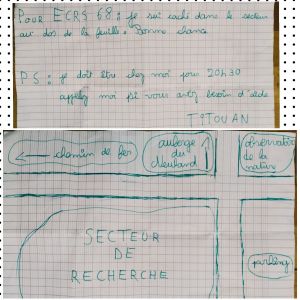 POUR ECRS 68 : je sui caché dans le secteur
au dos de la feuille. Bonne chance.
PS : je doit être chez moi pour 20h30
appelez moi si vous avez besoin d'aide
TITOUAN
← chemin de fer
auberge
du
Neuland
observatoire
de la
nature
SECTEUR
DE
RECHERCHE
parking